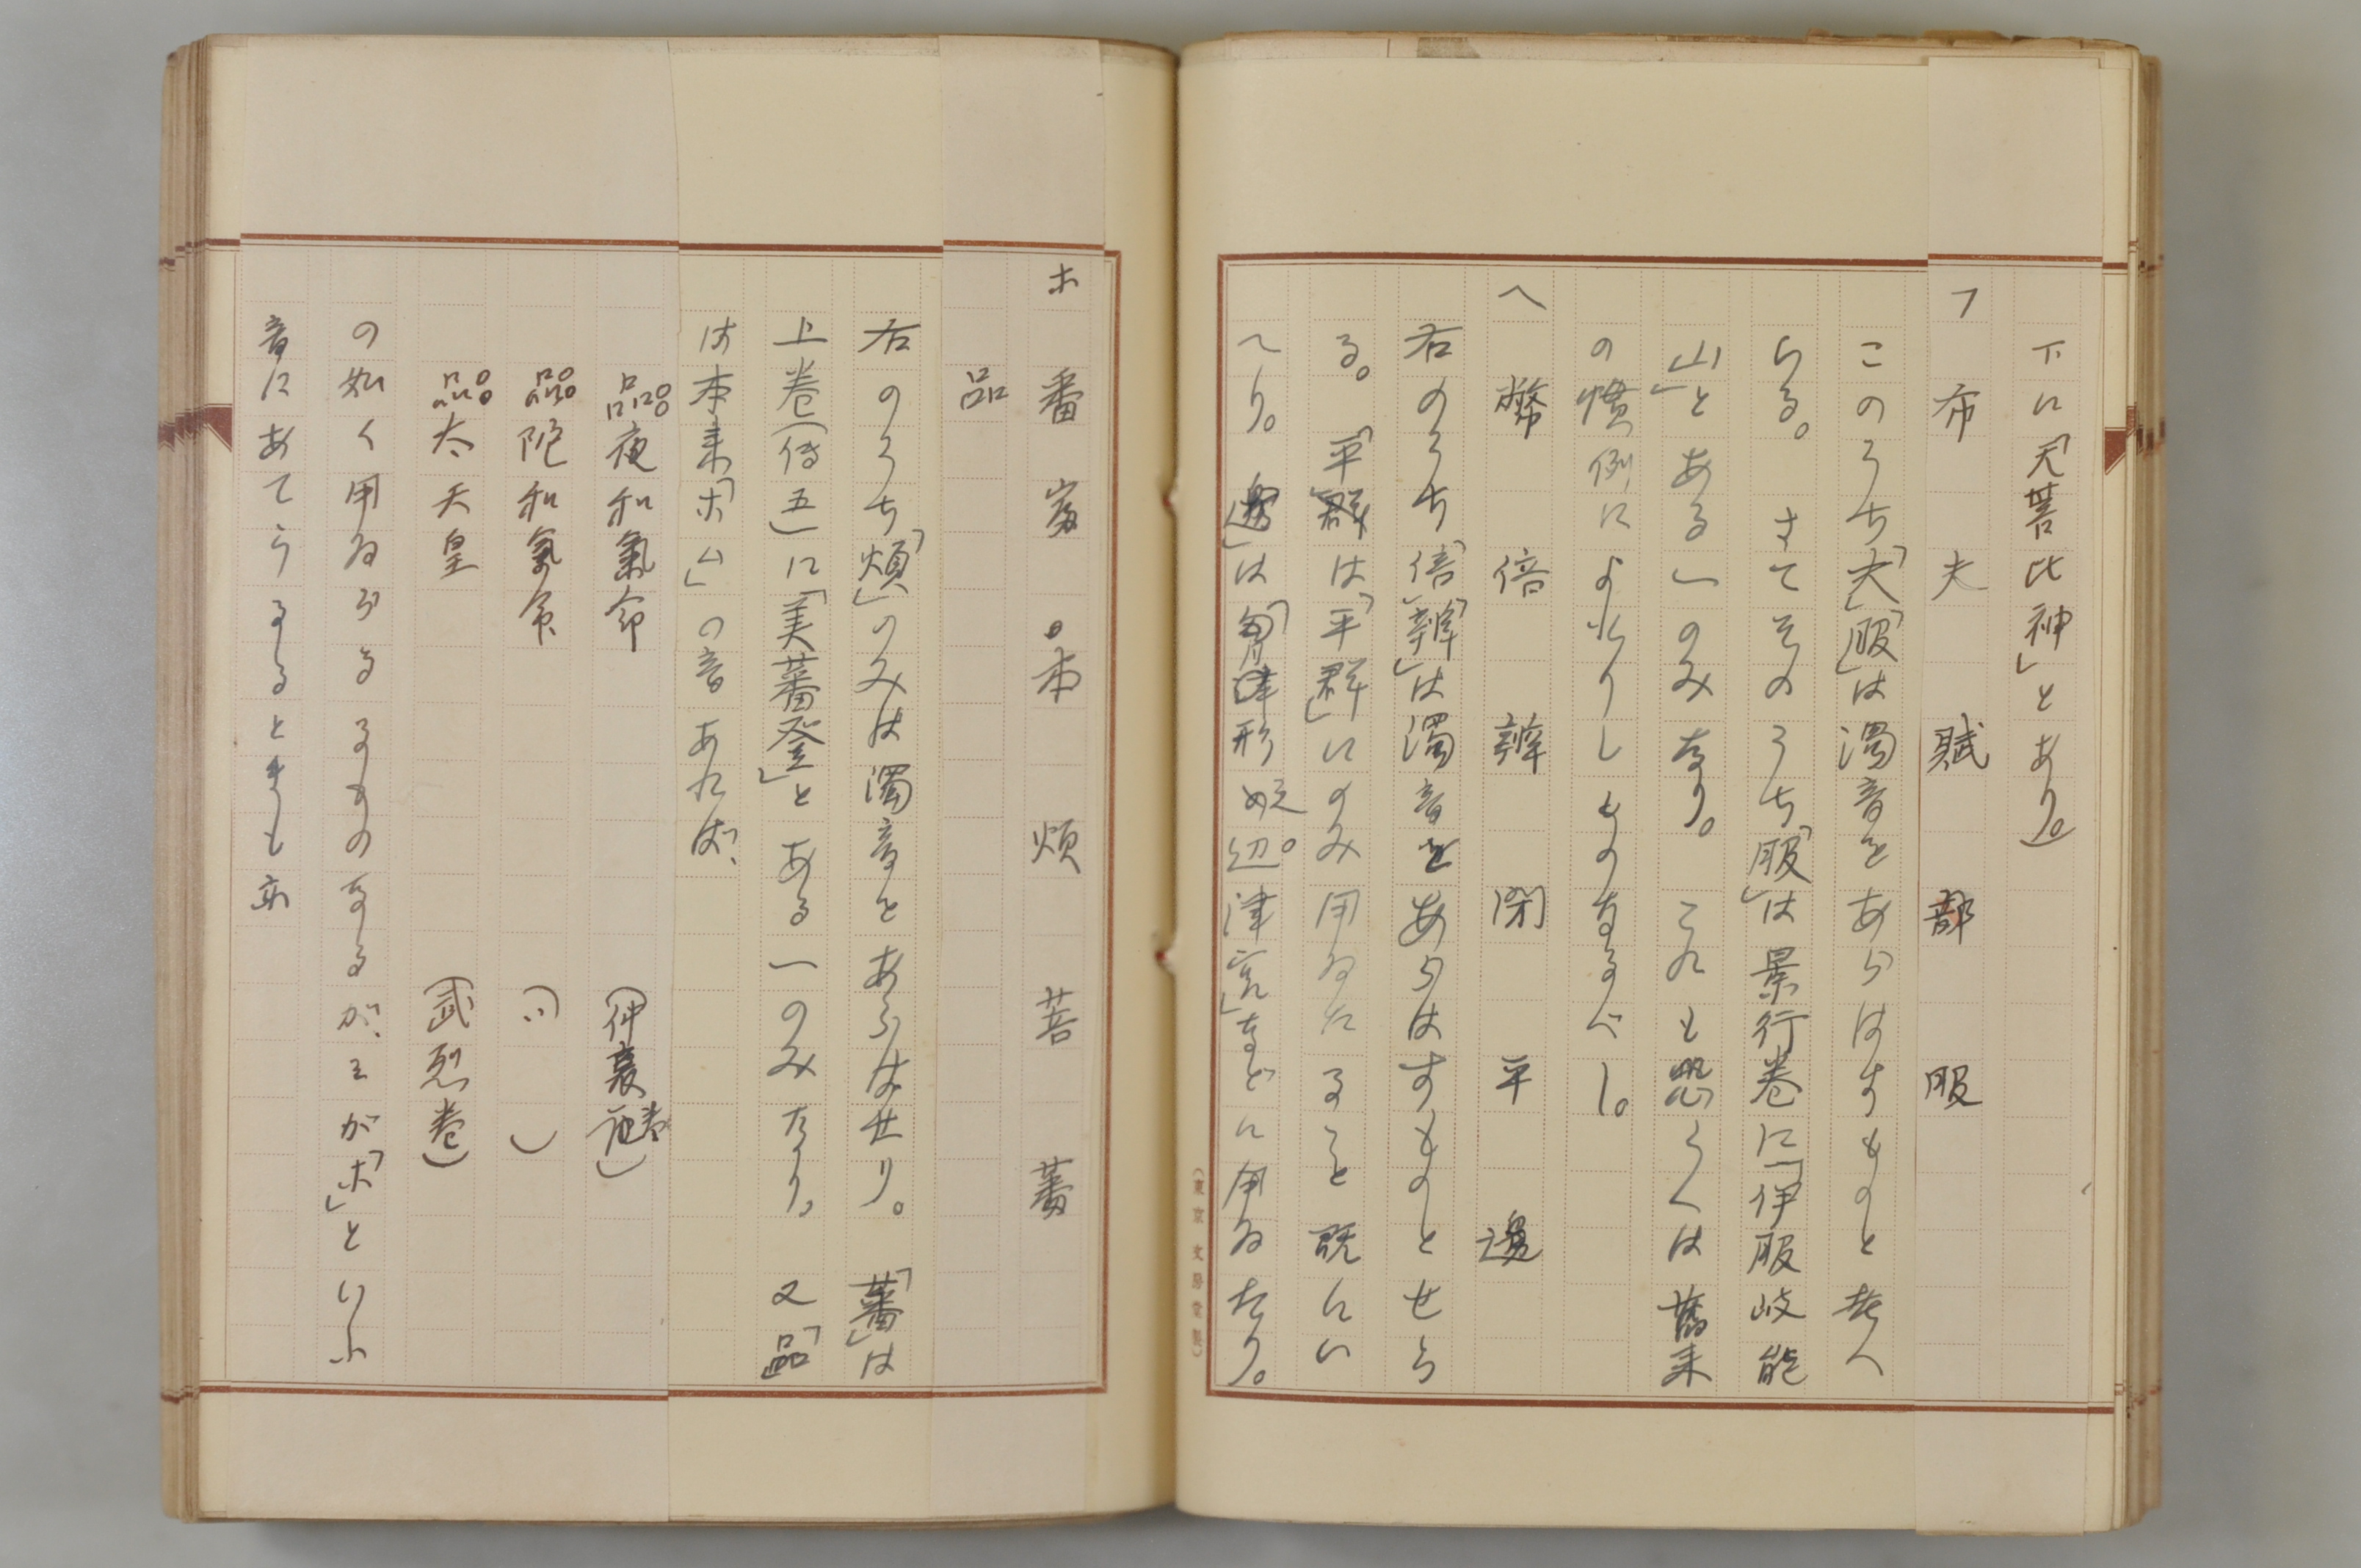 下に「天菩比神」とあり。)
フ 布 夫 賦 部 服
このうち「夫」「服」は濁音をあらはすものと考へ
らる。さてそのうち「服」は景行巻に「伊服岐能
山」とある一のみなり。これも恐らくは舊来
の慣例によれりしものなるべし。
ヘ 幣 倍 辨 閇 平 邊
右のうち「倍」「辨」は濁音をあらはすものとせら
る。「平」は「平群」にのみ用ゐたること既にい
へり。「邊」は津形 辺津宮」などに用ゐたり。
(東京 文房堂製)
ホ 番 富 本 煩 菩 蕃
品
右のうち「煩」のみは濁音をあらはせり。「蕃」は
上巻(傳五)に「美蕃登」とある一のみなり。又「品」
は本来「ホム」の音あれば、
品夜和氣命 (仲哀巻)
品陀和氣命 (〃)
品太天皇 (武烈巻)
の如く用ゐらるるものなるが、そが「ホ」といふ
音にあてらるるときも亦